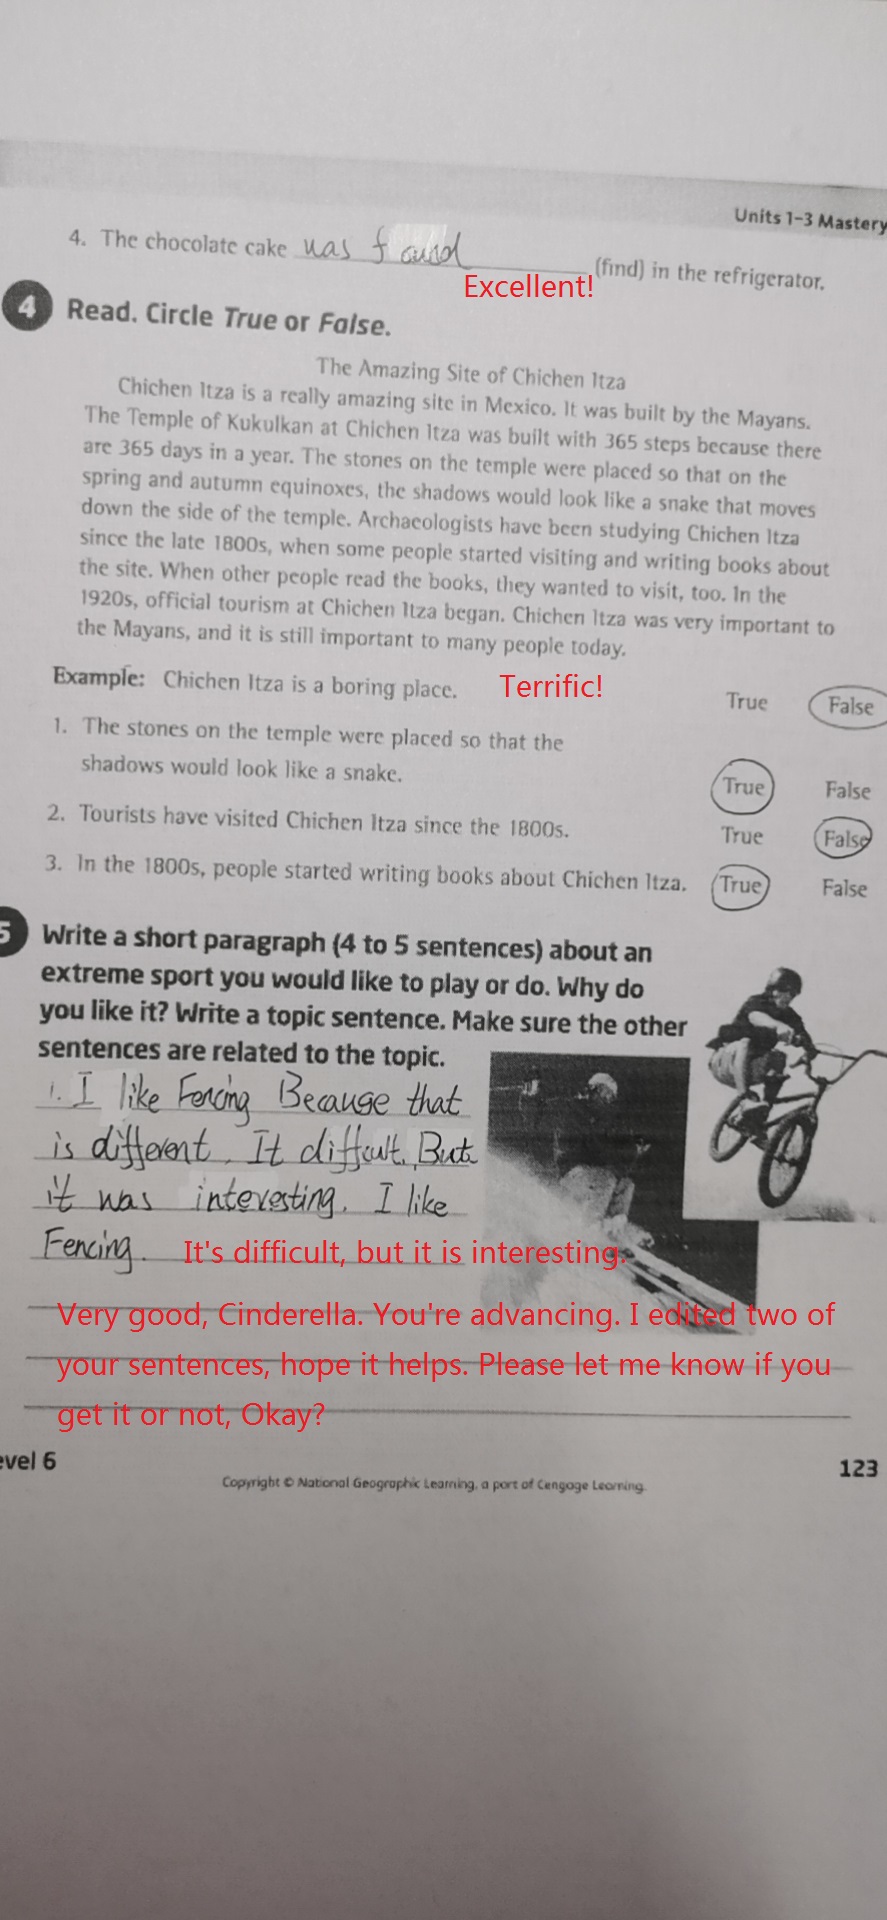 Units 1-3 Mastery
4. The chocolate cake was found (find) in the refrigerator.
Excellent!
4 Read. Circle True or False.
The Amazing Site of Chichen Itza
Chichen Itza is a really amazing site in Mexico. It was built by the Mayans.
The Temple of Kukulkan at Chichen Itza was built with 365 steps because there
are 365 days in a year. The stones on the temple were placed so that on the
spring and autumn equinoxes, the shadows would look like a snake that moves
down the side of the temple. Archaeologists have been studying Chichen Itza
since the late 1800s, when some people started visiting and writing books about
the site. When other people read the books, they wanted to visit, too. In the
1920s, official tourism at Chichen Itza began. Chichen Itza was very important to
the Mayans, and it is still important to many people today.
Example: Chichen Itza is a boring place. Terrific! True False
1. The stones on the temple were placed so that the
shadows would look like a snake. True False
2. Tourists have visited Chichen Itza since the 1800s. True False
3. In the 1800s, people started writing books about Chichen Itza. True False
5 Write a short paragraph (4 to 5 sentences) about an
extreme sport you would like to play or do. Why do
you like it? Write a topic sentence. Make sure the other
sentences are related to the topic.
1. I like Fencing Because that
is different. It difficult. But
it was interesting. I like
Fencing. It's difficult, but it is interesting.
Very good, Cinderella. You're advancing. I edited two of
your sentences, hope it helps. Please let me know if you
get it or not, Okay?
evel 6
123
Copyright © National Geographic Learning, a part of Cengage Learning.